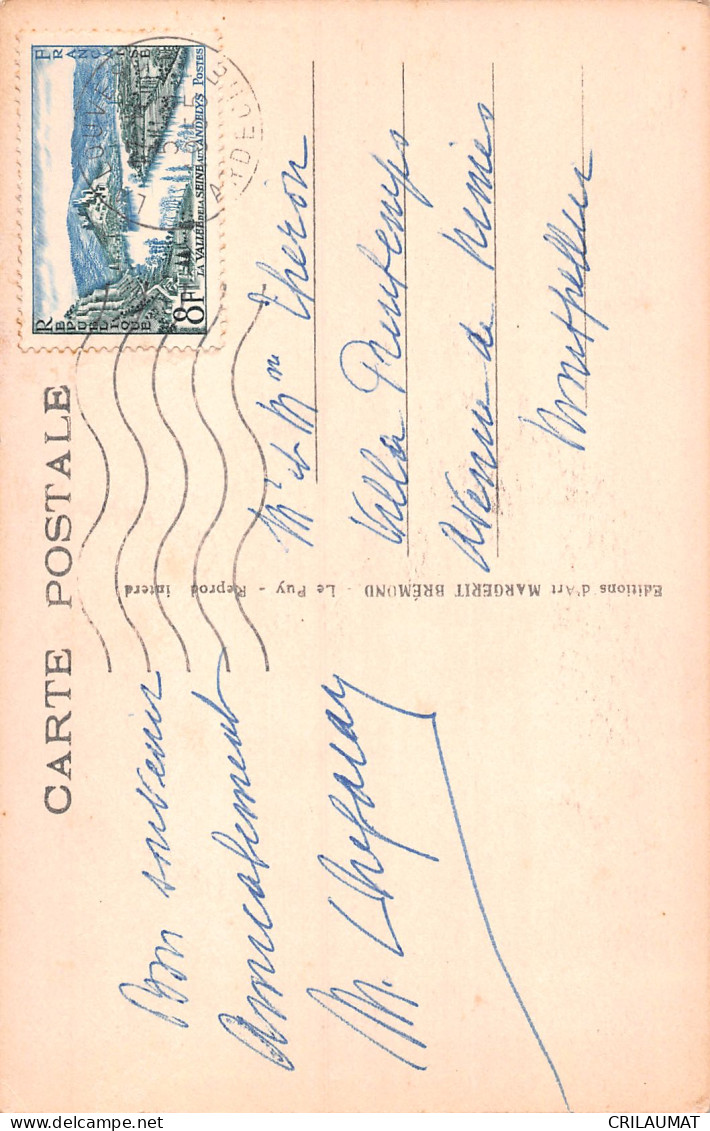 CARTE POSTALE
Bon souvenir
Amicalement
M.
Editions d'Art MARGERIT BRÉMOND - Le Puy - Reprod interd
RÉPUBLIQUE FRANÇAISE
8F
LA VALLÉE DE LA SEINE AUX ANDELYS POSTES
ARDECHE
Mr et Mme Theron
Villa Printemps
Avenue de Nimes
Montpellier
CRILAUMAT